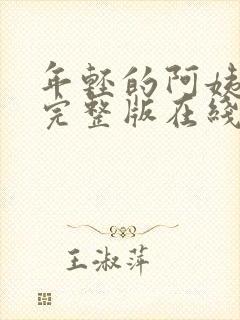 年轻的阿姨
完整版在线
王淑萍